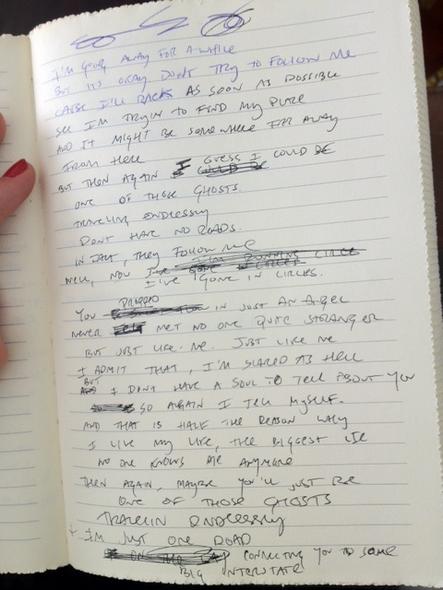 I'M GOING AWAY FOR A WHILE
BUT ITS OKAY DON'T TRY TO FOLLOW ME
CAUSE I'LL BACK AS SOON AS POSSIBLE
SEE I'M TRYIN TO FIND MY PLACE
AND IT MIGHT BE SOMEWHERE FAR AWAY
FROM HERE
BUT THEN AGAIN I GUESS I COULD BE
ONE OF THOSE GHOSTS
TRAVELING ENDLESSLY
DON'T HAVE NO ROADS.
IN FACT, THEY FOLLOW ME
WELL, NOW
I'VE GONE IN CIRCLES.
YOU DRIPPED IN JUST AN ANGEL
NEVER MET NO ONE QUITE STRANGER
BUT JUST LIKE ME. JUST LIKE ME
I ADMIT THAT, I'M SCARED AS HELL
BUT I DON'T HAVE A SOUL TO TELL ABOUT YOU
SO AGAIN I TELL MYSELF.
AND THAT IS HALF THE REASON WHY
I LIVE MY LIFE, THE BIGGEST LIE
NO ONE KNOWS ME ANYMORE
THEN AGAIN, MAYBE YOU'LL JUST BE
ONE OF THOSE GHOSTS
TRAVELIN ENDLESSLY
+ I'M JUST ONE ROAD
CONNECTING YOU TO SOME
BIG INTERSTATE